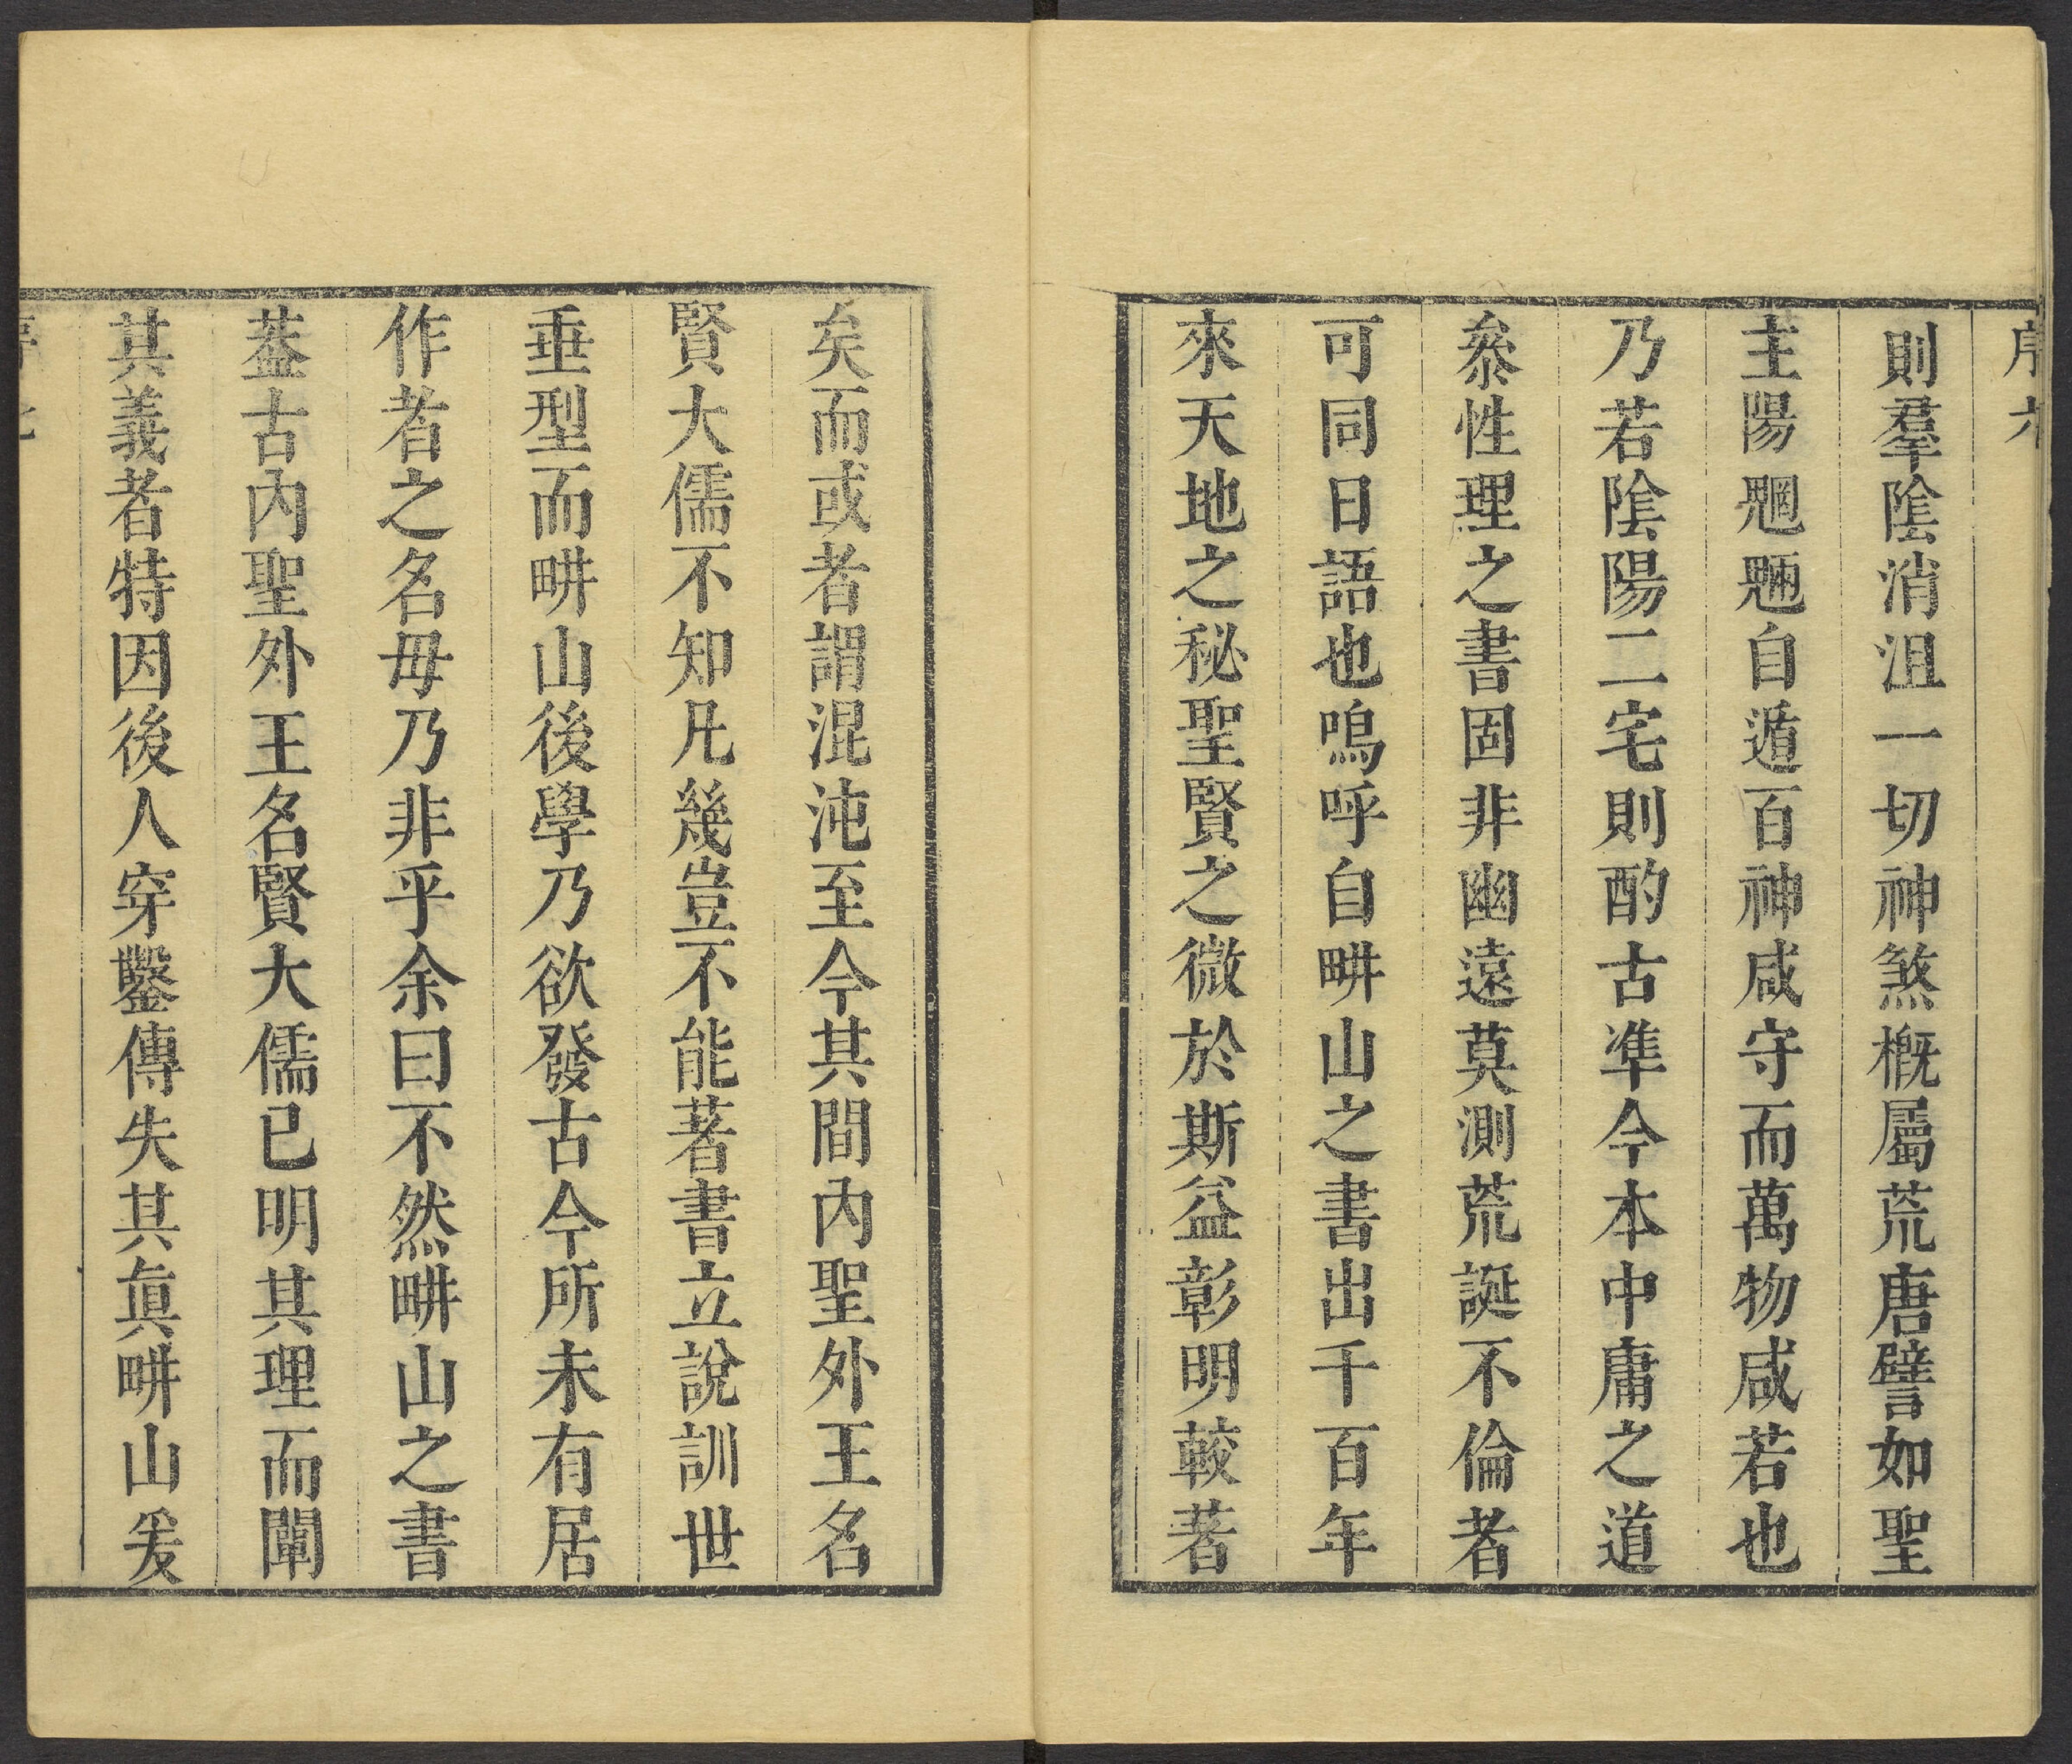 序六
則羣陰消沮一切神煞槪屬荒唐譬如聖
主陽魍魎自遁百神咸守而萬物咸若也
乃若陰陽二宅則酌古準今本中庸之道
叅性理之書固非幽遠莫測荒誕不倫者
可同日語也嗚呼自畊山之書出千百年
來天地之秘聖賢之微於斯益彰明較著
矣而或者謂混沌至今其間內聖外王名
賢大儒不知凡幾豈不能著書立說訓世
垂型而畊山後學乃欲發古今所未有居
作者之名毋乃非乎余曰不然畊山之書
葢古內聖外王名賢大儒已明其理而闡
其義者特因後人穿鑿傳失其眞畊山爰